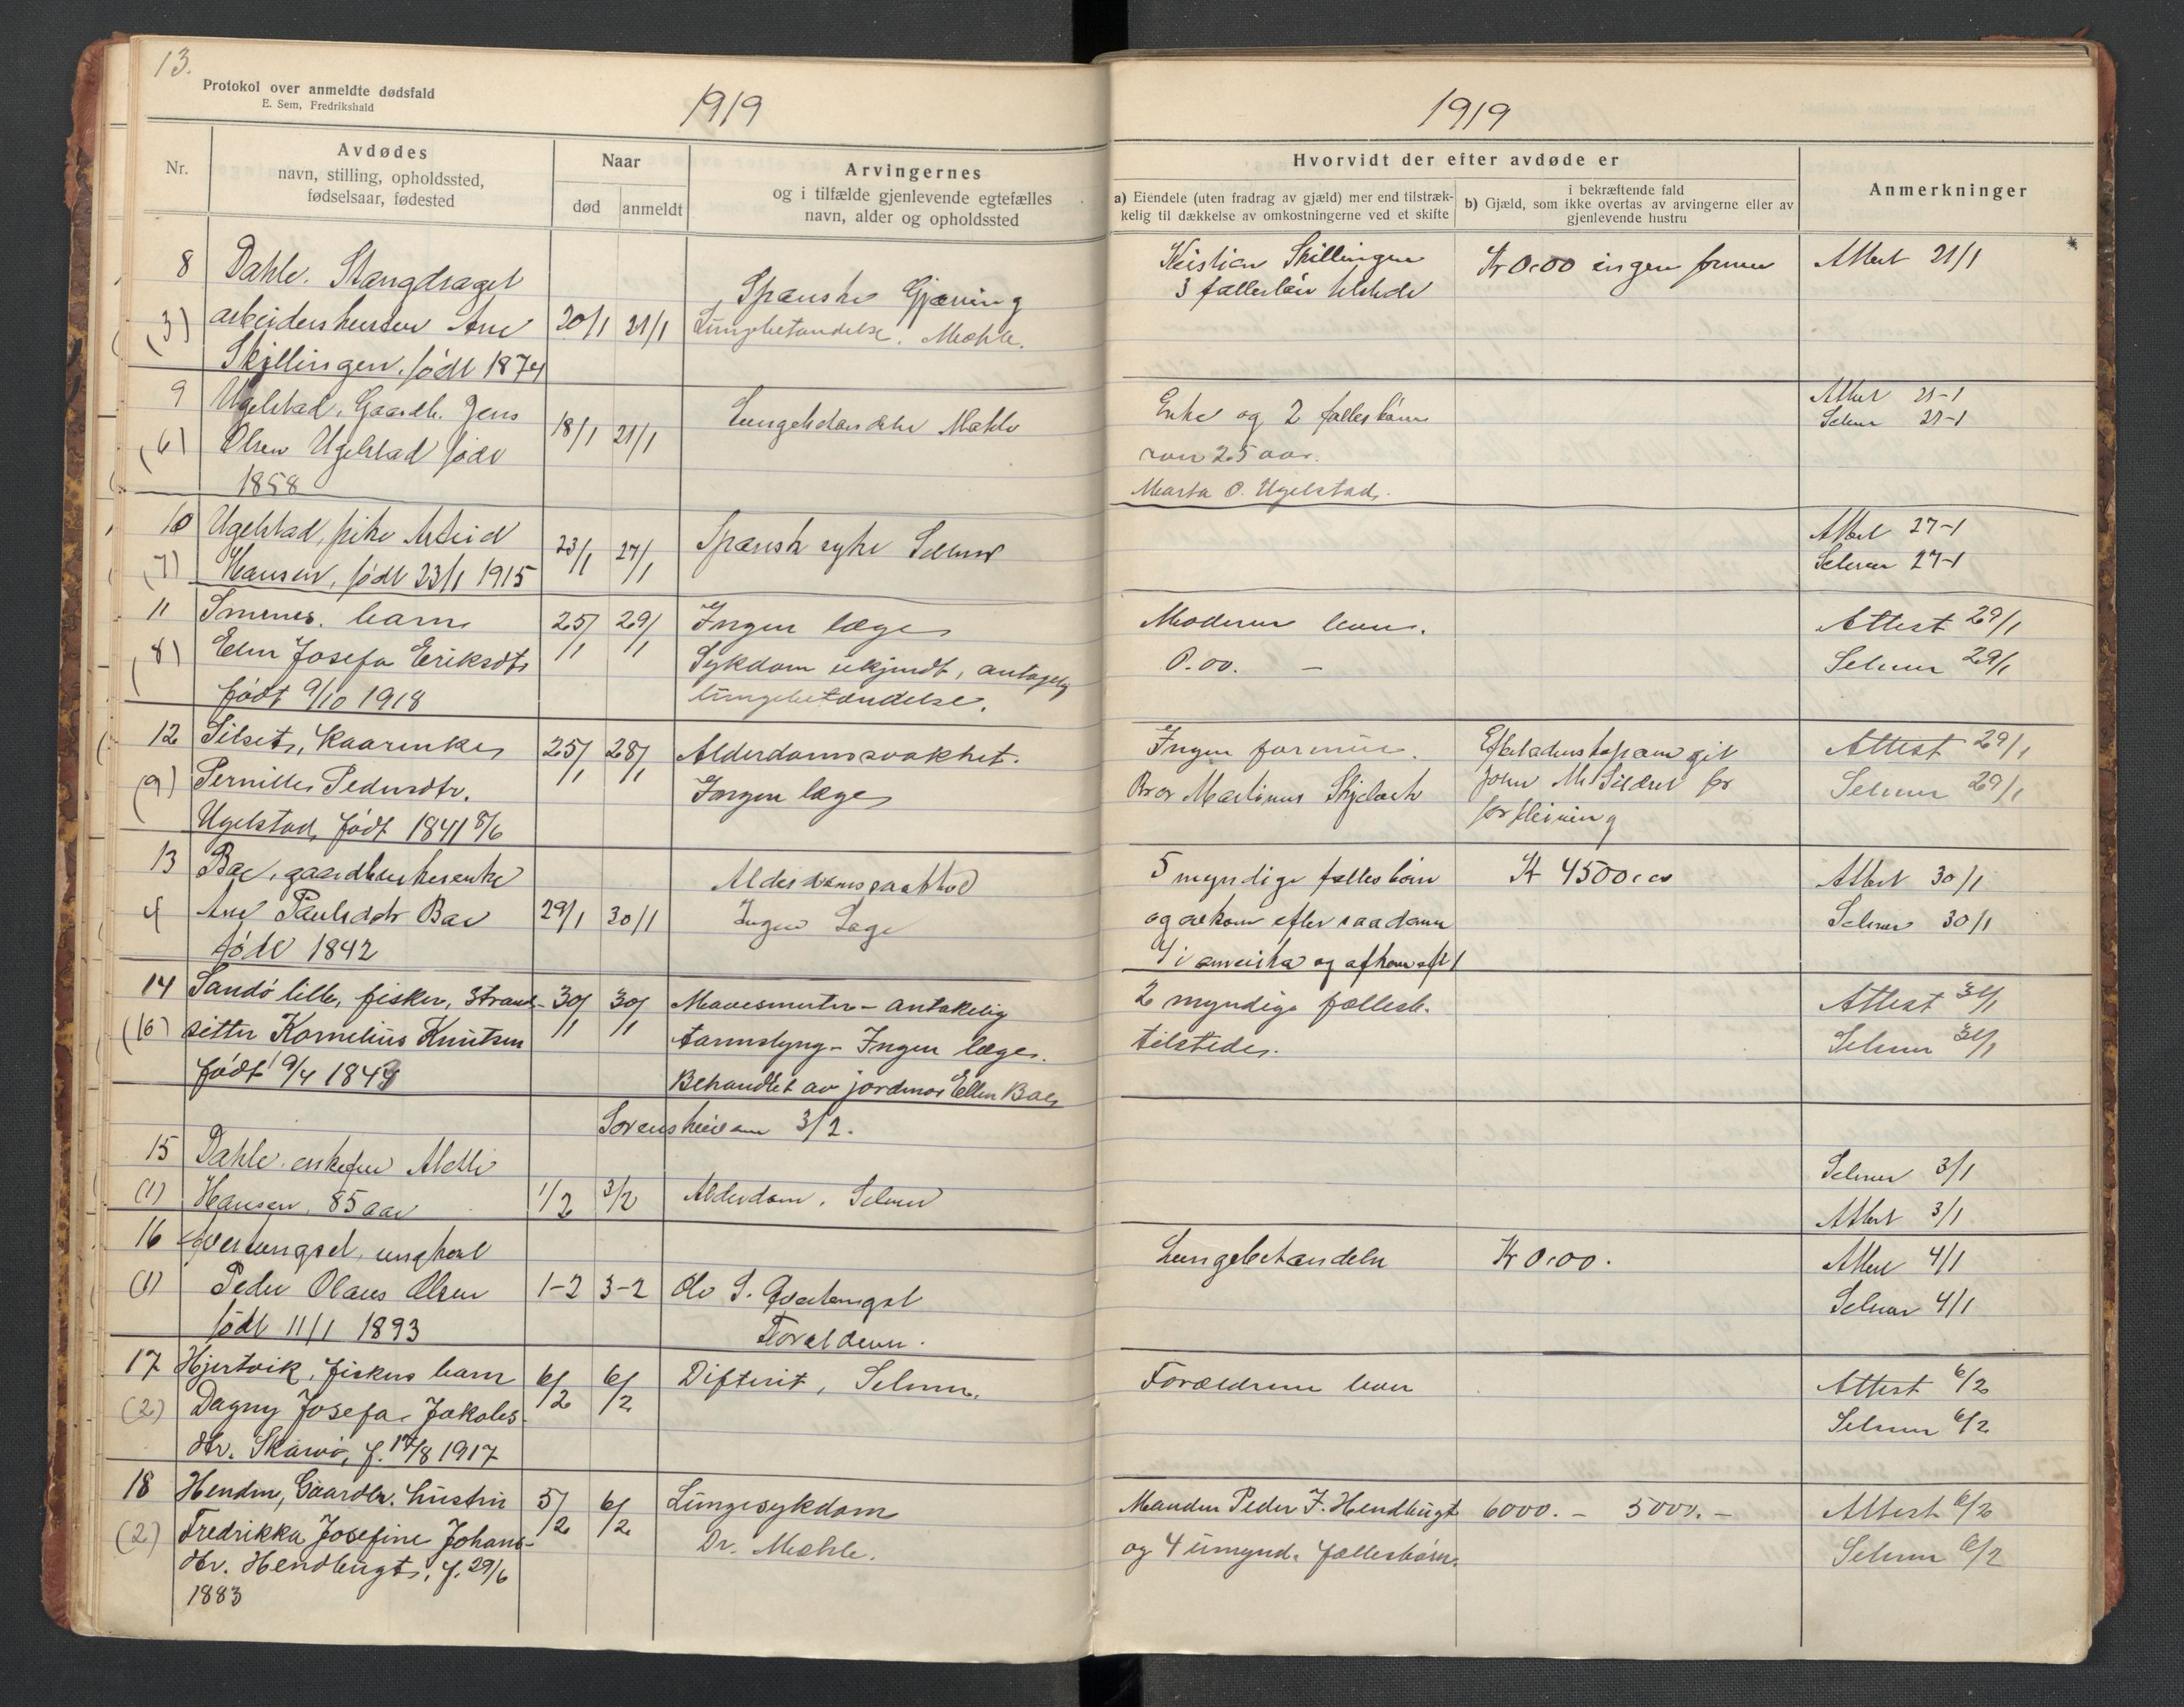 13.
Protokol over anmeldte dødsfald
E. Sem, Fredrikshald
1919
Nr.
Avdødes
navn, stilling, opholdssted,
fødselsaar, fødested
Naar
død
anmeldt
Arvingernes
og i tilfælde gjenlevende egtefælles
navn, alder og opholdssted
8
Dahle. Stangdraget
(3)
arbeiderhustru Ane
20/1 21/1
Spanske
Lungebetændelse. Mohle.
Skillingen. født 1874
9
Ugelstad. Gaardb. Jens
(6)
Olsen Ugelstad født
18/1 21/1
Lungebetændelse Mohle
1858
10
Ugelstad, pike Astrid
(7)
Hansen, født 23/1 1915
23/1 27/1
Spansk syke Selmer
11
Smines. barn
25/1 29/1
Ingen læge
(8)
Elen Josefa Eriksdtr
Sykdom ukjendt, antagelig
født 9/10 1918
lungebetændelse.
12
Silset, Kaarenke
25/1 28/1
Alderdomssvakhet.
(9)
Pernille Pedersdtr.
Ingen læge
Ugelstad, født 1841 8/6
13
Bae, gaardbrukerenke
Ane Paulsdtr Bae
29/1 30/1
Ingen Læge
født 1842
14
Sandø lille, fisker, Strand-
30/1 30/1
Mavesmerter - antakelig
(10)
sitter Kornelius Knutsen
tarmslyng - Ingen læge.
født 9/4 1849
Behandlet av jordmor Ellen Bae
3/2.
15
Dahle. enkefru
(1)
Hansen, 85 aar
1/2 3/2
Alderdom. Selmer
16
Øverlengset, ungkarl
(1)
Peder Olaus Olsen
1-2 3-2
født 11/1 1893
Forældrene.
17
Hjertvik, fiskers barn
6/2 6/2
Difterit, Selmer.
(2)
Dagny Josefa Jakobs-
dtr. Skarvø, f. 17/8 1917
18
Henden, Gaardbr. hustru
5/2 6/2
Lungesykdom
(2)
Fredrikka Josefine Johans-
Dr. Mohle.
dtr. Hendbugt, f. 29/6
1883
1919
Hvorvidt der efter avdøde er
a) Eiendele (uten fradrag av gjæld) mer end tilstræk-
kelig til dækkelse av omkostningerne ved et skifte
i bekræftende fald
b) Gjæld, som ikke overtas av arvingerne eller av
gjenlevende hustru
Anmerkninger
Kristian Skillingen
Kr 0.00 ingen formue
Attest 21/1
3 fællesbørn tilstede
Enke og 2 fællesbørn
Attest 21-1
Selmer 21-1
over 25 aar.
Marta O. Ugelstad.
Attest 27-1
Selmer 27-1
Moderen lever.
Attest 29/1
0.00. -
Selmer 29/1
Ingen formue.
Attest 29/1
Bror Martinus
Selmer 29/1
forpleining
5 myndige fællesbørn
Kr 4500.00
Attest 30/1
og avkom efter saadanne
Selmer 30/1
4 i amerika og afkom aft 1
2 myndige fællesb.
Attest 30/1
tilstede.
Selmer 30/1
Selmer 3/1
Attest 3/1
Lungebetændelse
Kr 0.00.
Attest 4/1
Selmer 4/1
Forældrene lever
Attest 6/2
Selmer 6/2
Manden Peder J. Hendbugt
6000. - 3000. -
Attest 6/2
og 4 umynd. fællesbørn.
Selmer 6/2